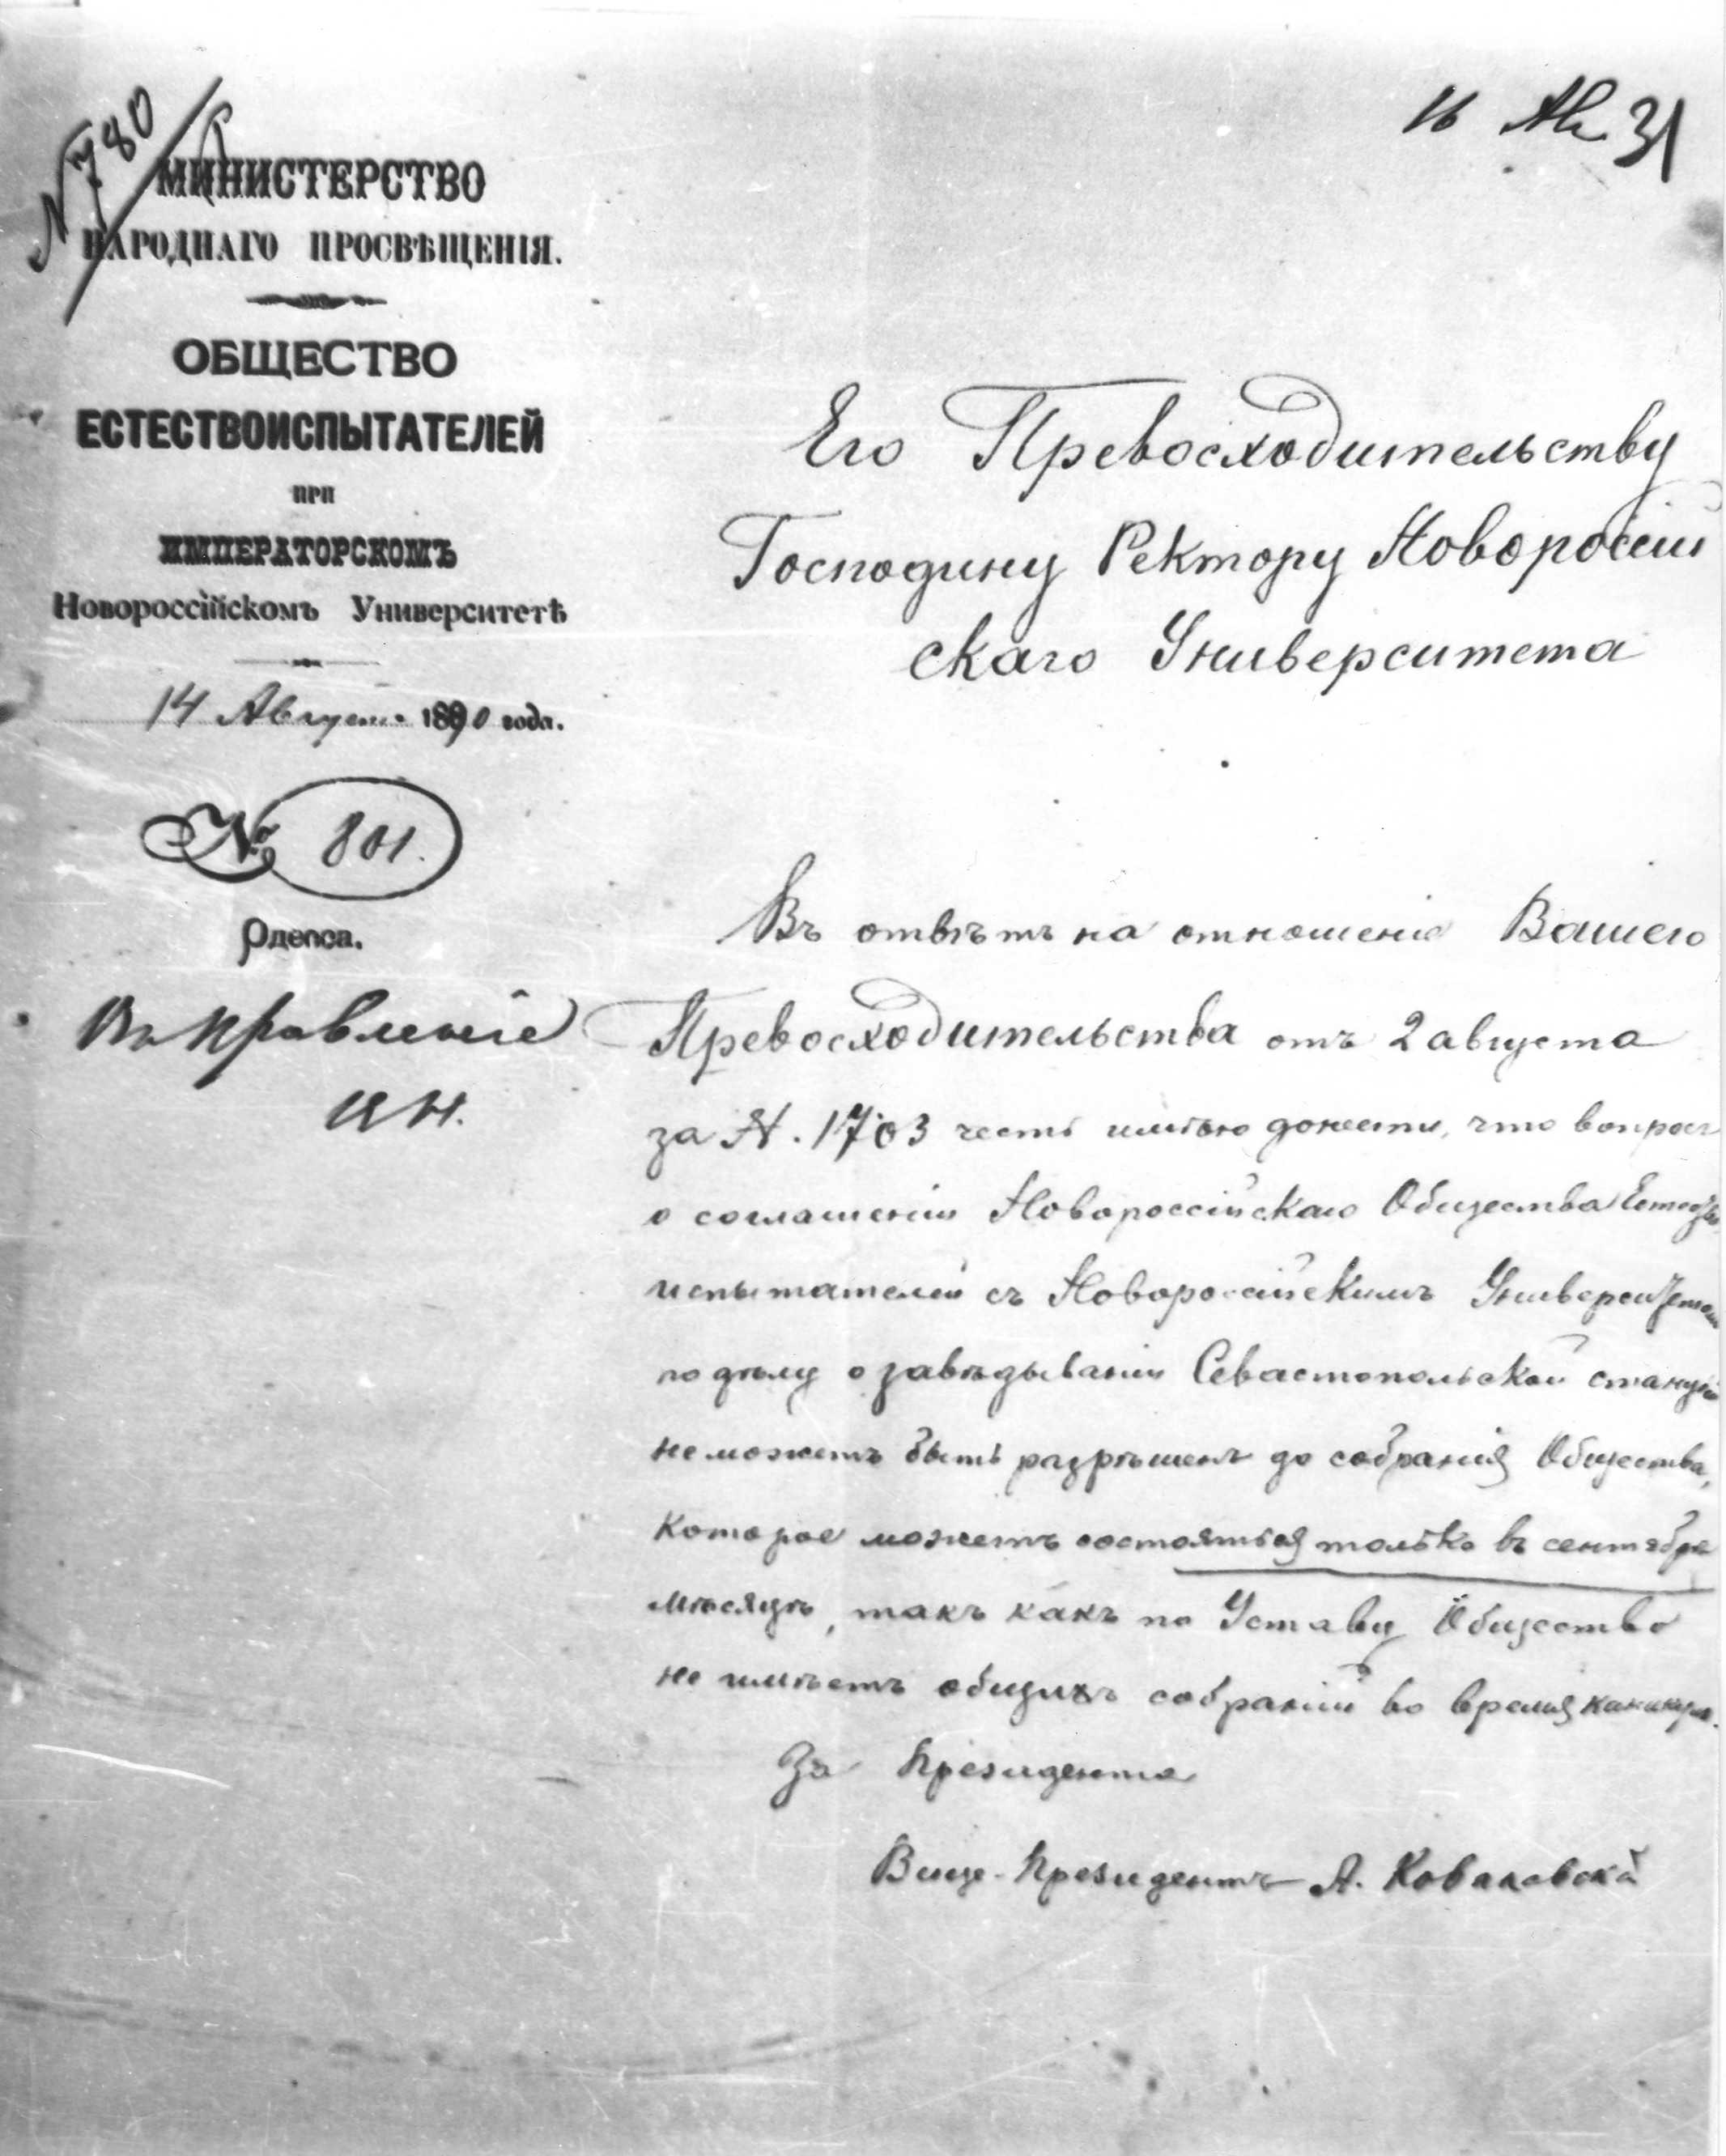 № 780
16 Ав 31
МИНИСТЕРСТВО
НАРОДНАГО ПРОСВѢЩЕНІЯ.
ОБЩЕСТВО
ЕСТЕСТВОИСПЫТАТЕЛЕЙ
при
ИМПЕРАТОРСКОМЪ
Новороссійскомъ Университетѣ
14 Августа 1890 года.
№ 801.
Одесса.
Въ правленіе
Его Превосходительству
Господину Ректору Новороссій
скаго Университета
Въ отвѣтъ на отношеніе Вашего
Превосходительства отъ 2 августа
за N. 1703 честь имѣю донести, что вопросъ
о соглашеніи Новороссійскаго Общества Естество
испытателей съ Новороссійскимъ Университетомъ
по дѣлу о завѣдываніи Севастопольской станціей
не можетъ быть разрѣшенъ до собранія Общества,
которое можетъ состояться только въ сентябрѣ
мѣсяцѣ, такъ какъ по Уставу Общество
не имѣетъ общихъ собраній во время каникулъ.
За Президента
Вице-Президентъ А. Ковалевскій